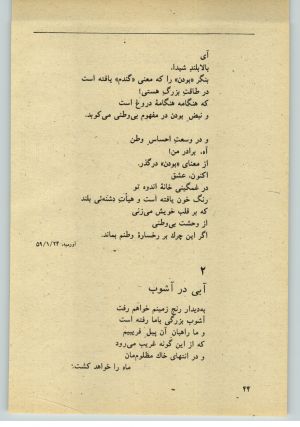 آی
بالابلند شیدا.
بنگر «بودن» را که معنی «گندم» یافته است
در طاقتِ بزرگِ هستی!
که هنگامه هنگامهٔ دروغ است
و نبض بودن در مفهوم بی‌وطنی می‌کوبد.
و در وسعتِ احساسِ وطن
آه، برادر من!
از معنای «بودن» درگذر.
اکنون، عشق
در غمگینی خانهٔ اندوه تو
رنگ خون یافته است و هیأت دشنه‌ئی بلند
که بر قلب خویش می‌زنی
از وحشت بی‌وطنی
اگر این چرك بر رخسارهٔ وطنم بماند.
۵۹/۱/۲۴
۲
آبی در آشوب
به‌دیدار رنج زمینم خواهم رفت
آشوب بزرگی باما رفته است
و ما راهبان آن پیل غریبیم
که از این گونه غریب می‌رود
و در انتهای خاك مظلوم‌مان
ماه را خواهد کشت.
۲۳